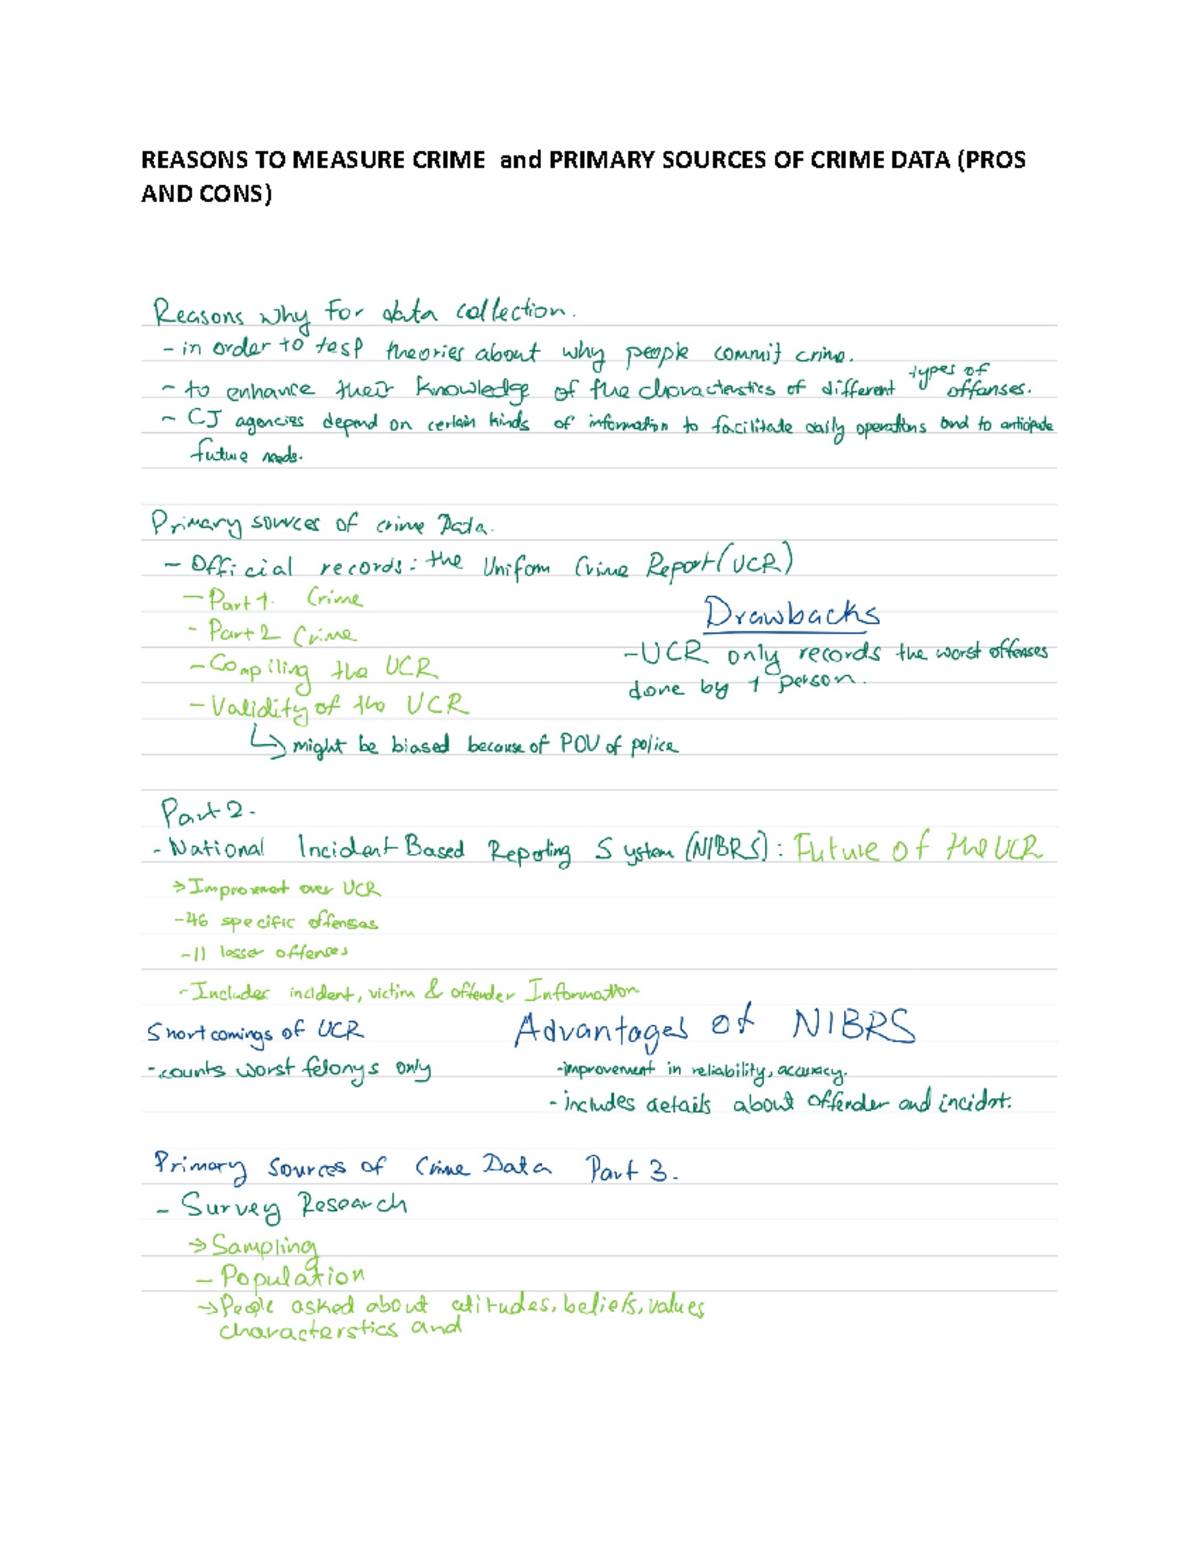 REASONS TO MEASURE CRIME and PRIMARY SOURCES OF CRIME DATA (PROS
AND CONS)
Reasons why For data collection.
- in order to test theories about why people commit crime.
- to enhance their knowledge of the characterstics of different types of offenses.
- CJ agencies depend on certain kinds of information to facilitate daily operations and to anticipate
future needs.
Primary sources of crime Data.
- Official records: the Uniform Crime Report (UCR)
- Part 1. Crime
- Part 2 Crime
- Compiling the UCR
- Validity of the UCR
↳ might be biased because of POV of police
Drawbacks
- UCR only records the worst offenses
done by 1 person.
Part 2.
- National Incident Based Reporting System (NIBRS): Future of the UCR
→ Improvment over UCR
- 46 specific offenses
- 11 lesser offenses
- Includes incident, victim & offender Information
Shortcomings of UCR
- counts worst felonys only
Advantages of NIBRS
- improvement in reliability, accuracy.
- includes details about offender and incident.
Primary Sources of Crime Data Part 3.
- Survey Research
→ Sampling
- Population
→ People asked about attitudes, beliefs, values
characterstics and